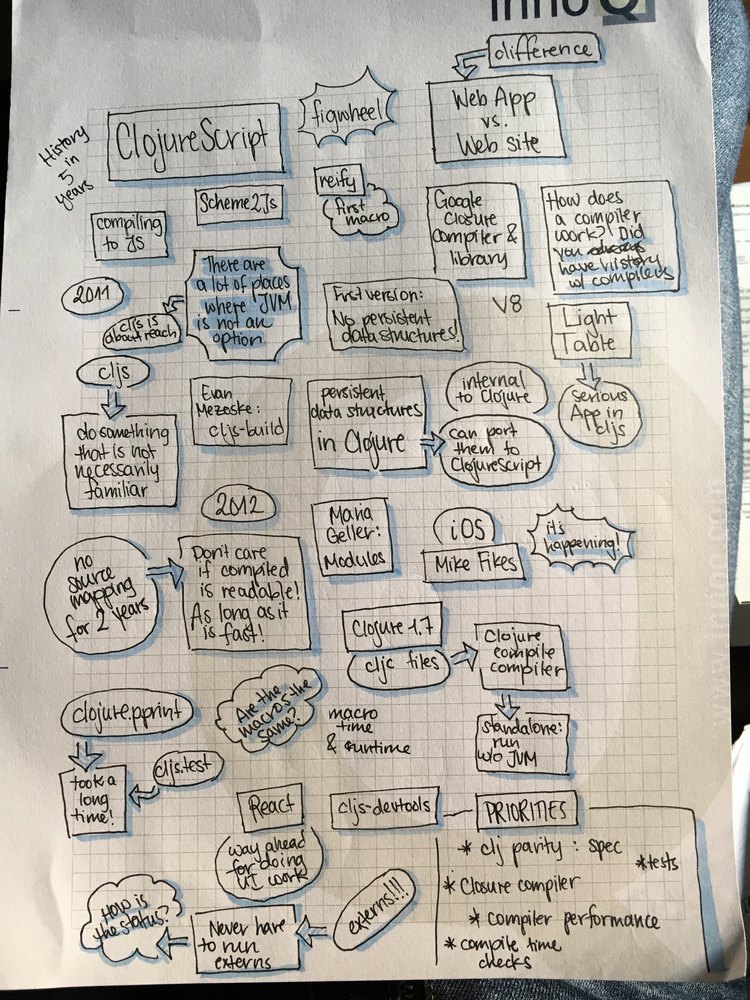 innoQ
difference
History
in
5
years
ClojureScript
figwheel
Web App
vs.
Web site
compiling
to Js
Scheme2Js
reify
first
macro
Google
Closure
compiler &
library
How does
a compiler
work? Did
you
have
w/ compilers
2011
cljs is
about reach
There are
a lot of places
where JVM
is not an
option
First version:
No persistent
data structures!
V8
Light
Table
serious
App in
cljs
cljs
do something
that is not
necessarily
familiar
Evan
Mezeske:
cljs-build
persistent
data structures
in Clojure
internal
to Clojure
can port
them to
ClojureScript
2012
Maria
Geller:
Modules
iOS
Mike Fikes
it's
happening!
no
source
mapping
for 2 years
Don't care
if compiled
is readable!
As long as it
is fast!
Clojure 1.7
cljc files
Clojure
compile
compiler
standalone:
run
w/o JVM
clojure.pprint
took a
long
time!
cljs.test
Are the
macros the
same?
macro
time
& runtime
React
way ahead
for doing
UI work
cljs-devtools
PRIORITIES
* clj parity : spec
* tests
* Closure compiler
* compiler performance
* compile time
checks
externs!!!
Never have
to run
externs
How is
the status?